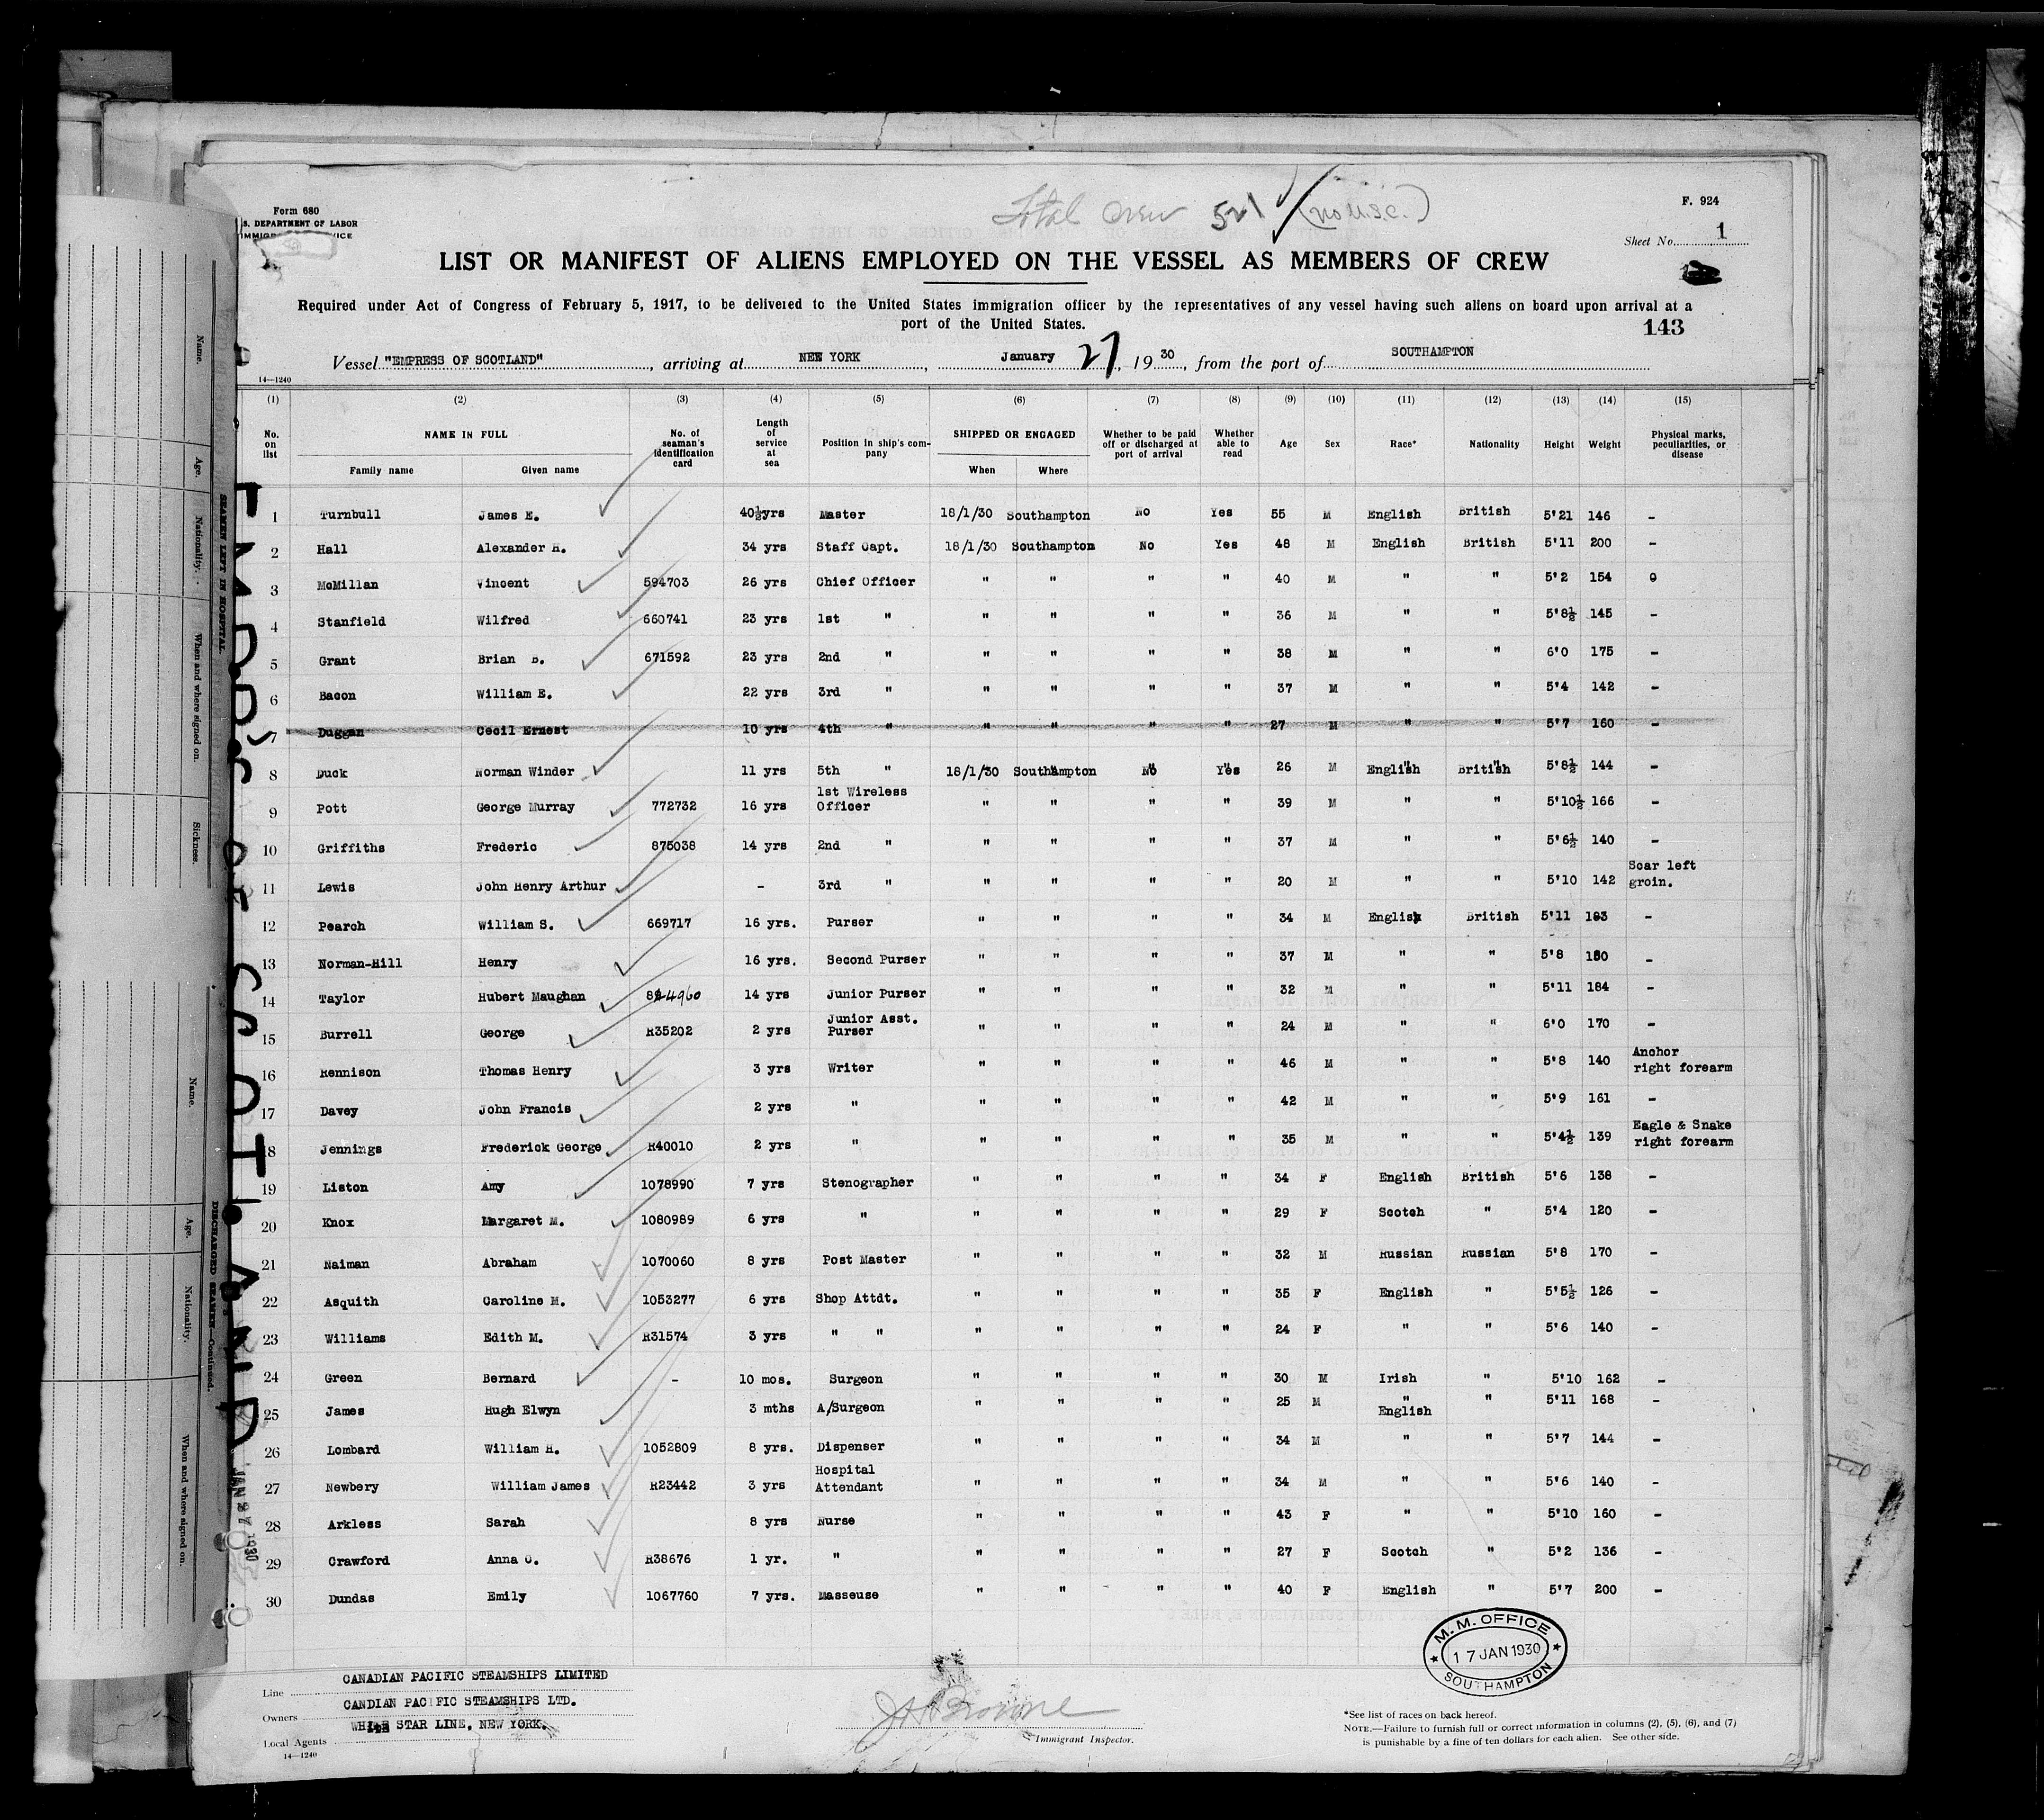 Total Crew 521 (no U.S.C.)
Form 680
S. DEPARTMENT OF LABOR
F. 924
Sheet No. 1
LIST OR MANIFEST OF ALIENS EMPLOYED ON THE VESSEL AS MEMBERS OF CREW
Required under Act of Congress of February 5, 1917, to be delivered to the United States immigration officer by the representatives of any vessel having such aliens on board upon arrival at a
port of the United States.
143
Vessel "EMPRESS OF SCOTLAND", arriving at NEW YORK, January 27, 1930, from the port of SOUTHAMPTON
14—1240
(1) (2) (3) (4) (5) (6) (7) (8) (9) (10) (11) (12) (13) (14) (15)
No. on list NAME IN FULL Family name Given name No. of seaman's identification card Length of service at sea Position in ship's company SHIPPED OR ENGAGED When Where Whether to be paid off or discharged at port of arrival Whether able to read Age Sex Race* Nationality Height Weight Physical marks, peculiarities, or disease
1 Turnbull James E. 40½yrs Master 18/1/30 Southampton No Yes 55 M English British 5'21 146 -
2 Hall Alexander H. 34 yrs Staff Capt. 18/1/30 Southampton No Yes 48 M English British 5'11 200 -
3 McMillan Vincent 594703 26 yrs Chief Officer " " " " 40 M " " 5'2 154 0
4 Stanfield Wilfred 660741 23 yrs 1st " " " " " 36 M " " 5'8½ 145 -
5 Grant Brian B. 671592 23 yrs 2nd " " " " " 38 M " " 6'0 175 -
6 Bacon William E. 22 yrs 3rd " " " " " 37 M " " 5'4 142 -
7 Duggan Cecil Ernest 10 yrs 4th " " " " " 27 M " " 5'7 160 -
8 Duck Norman Winder 11 yrs 5th " 18/1/30 Southampton No Yes 26 M English British 5'8½ 144 -
9 Pott George Murray 772732 16 yrs 1st Wireless Officer " " " " 39 M " " 5'10½ 166 -
10 Griffiths Frederic 875038 14 yrs 2nd " " " " " 37 M " " 5'6½ 140 -
11 Lewis John Henry Arthur - 3rd " " " " " 20 M " " 5'10 142 Scar left groin.
12 Pearch William S. 669717 16 yrs. Purser " " " " 34 M English British 5'11 183 -
13 Norman-Hill Henry 16 yrs. Second Purser " " " " 37 M " " 5'8 180 -
14 Taylor Hubert Maughan 824960 14 yrs Junior Purser " " " " 32 M " " 5'11 184 -
15 Burrell George R35202 2 yrs Junior Asst. Purser " " " " 24 M " " 6'0 170 -
16 Rennison Thomas Henry 3 yrs Writer " " " " 46 M " " 5'8 140 Anchor right forearm
17 Davey John Francis 2 yrs " " " " " 42 M " " 5'9 161 -
18 Jennings Frederick George R40010 2 yrs " " " " " 35 M " " 5'4½ 139 Eagle & Snake right forearm
19 Liston Amy 1078990 7 yrs Stenographer " " " " 34 F English British 5'6 138 -
20 Knox Margaret M. 1080989 6 yrs " " " " " 29 F Scotch " 5'4 120 -
21 Naiman Abraham 1070060 8 yrs Post Master " " " " 32 M Russian Russian 5'8 170 -
22 Asquith Caroline M. 1053277 6 yrs Shop Attdt. " " " " 35 F English " 5'5½ 126 -
23 Williams Edith M. R31574 3 yrs " " " " " " 24 F " " 5'6 140 -
24 Green Bernard - 10 mos. Surgeon " " " " 30 M Irish " 5'10 162 -
25 James Hugh Elwyn 3 mths A/Surgeon " " " " 25 M " English " 5'11 168 -
26 Lombard William H. 1052809 8 yrs. Dispenser " " " " 34 M " " 5'7 144 -
27 Newbery William James R23442 3 yrs Hospital Attendant " " " " 34 M " " 5'6 140 -
28 Arkless Sarah 8 yrs Nurse " " " " 43 F " " 5'10 160 -
29 Crawford Anna C. R38676 1 yr. " " " " " 27 F Scotch " 5'2 136 -
30 Dundas Emily 1067760 7 yrs. Masseuse " " " " 40 F English " 5'7 200 -
M. M. OFFICE
17 JAN 1930
SOUTHAMPTON
Line CANADIAN PACIFIC STEAMSHIPS LIMITED
Owners CANDIAN PACIFIC STEAMSHIPS LTD.
Local Agents WHITE STAR LINE, NEW YORK.
14—1240
Immigrant Inspector.
*See list of races on back hereof.
NOTE.—Failure to furnish full or correct information in columns (2), (5), (6), and (7)
is punishable by a fine of ten dollars for each alien. See other side.
EMPRESS OF SCOTLAND
JAN 27 1930
SEAMEN LEFT IN HOSPITAL.
Name. Age. Nationality. When and where signed on. Sickness.
DISCHARGED SEAMEN—Continued.
Name. Age. Nationality. When and where signed on.